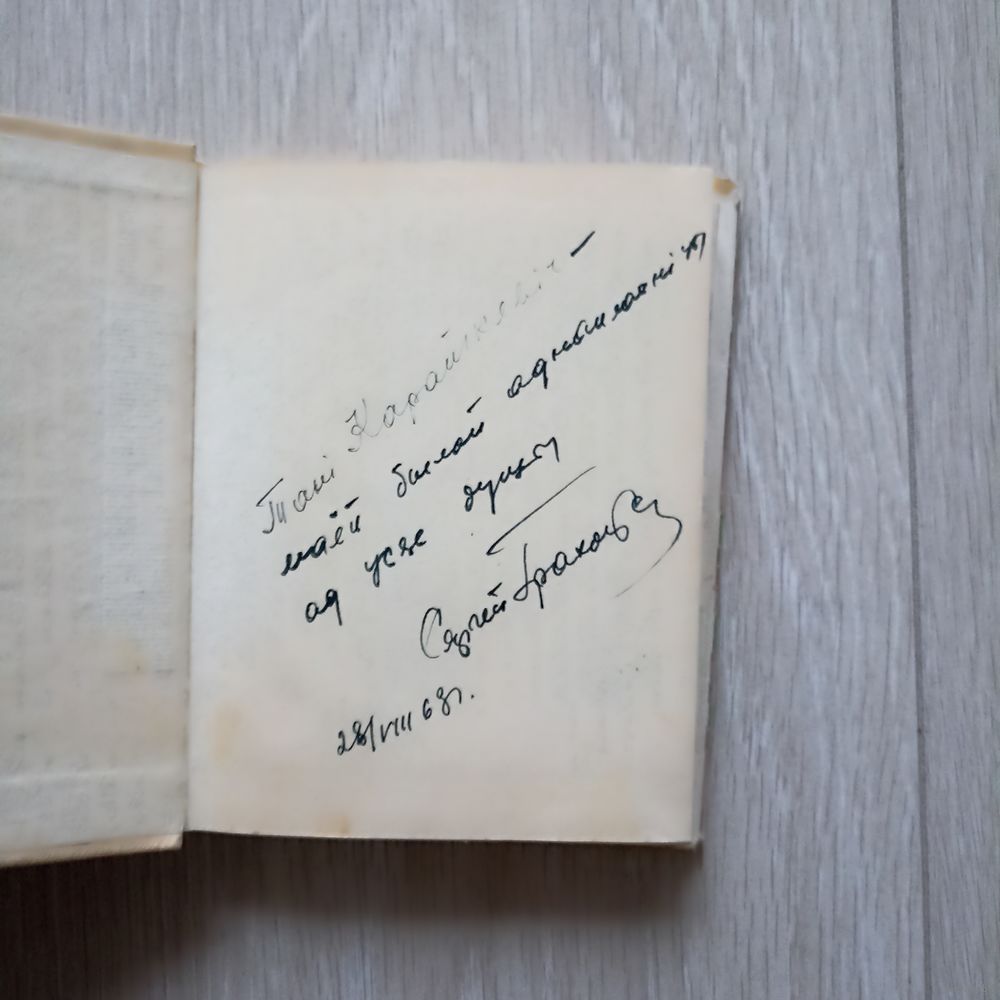 Тані Карайкевіч —
маёй былой аднышланіцы
ад усяе душы
Сяргей Грахоўскі
28/VIII 68 г.